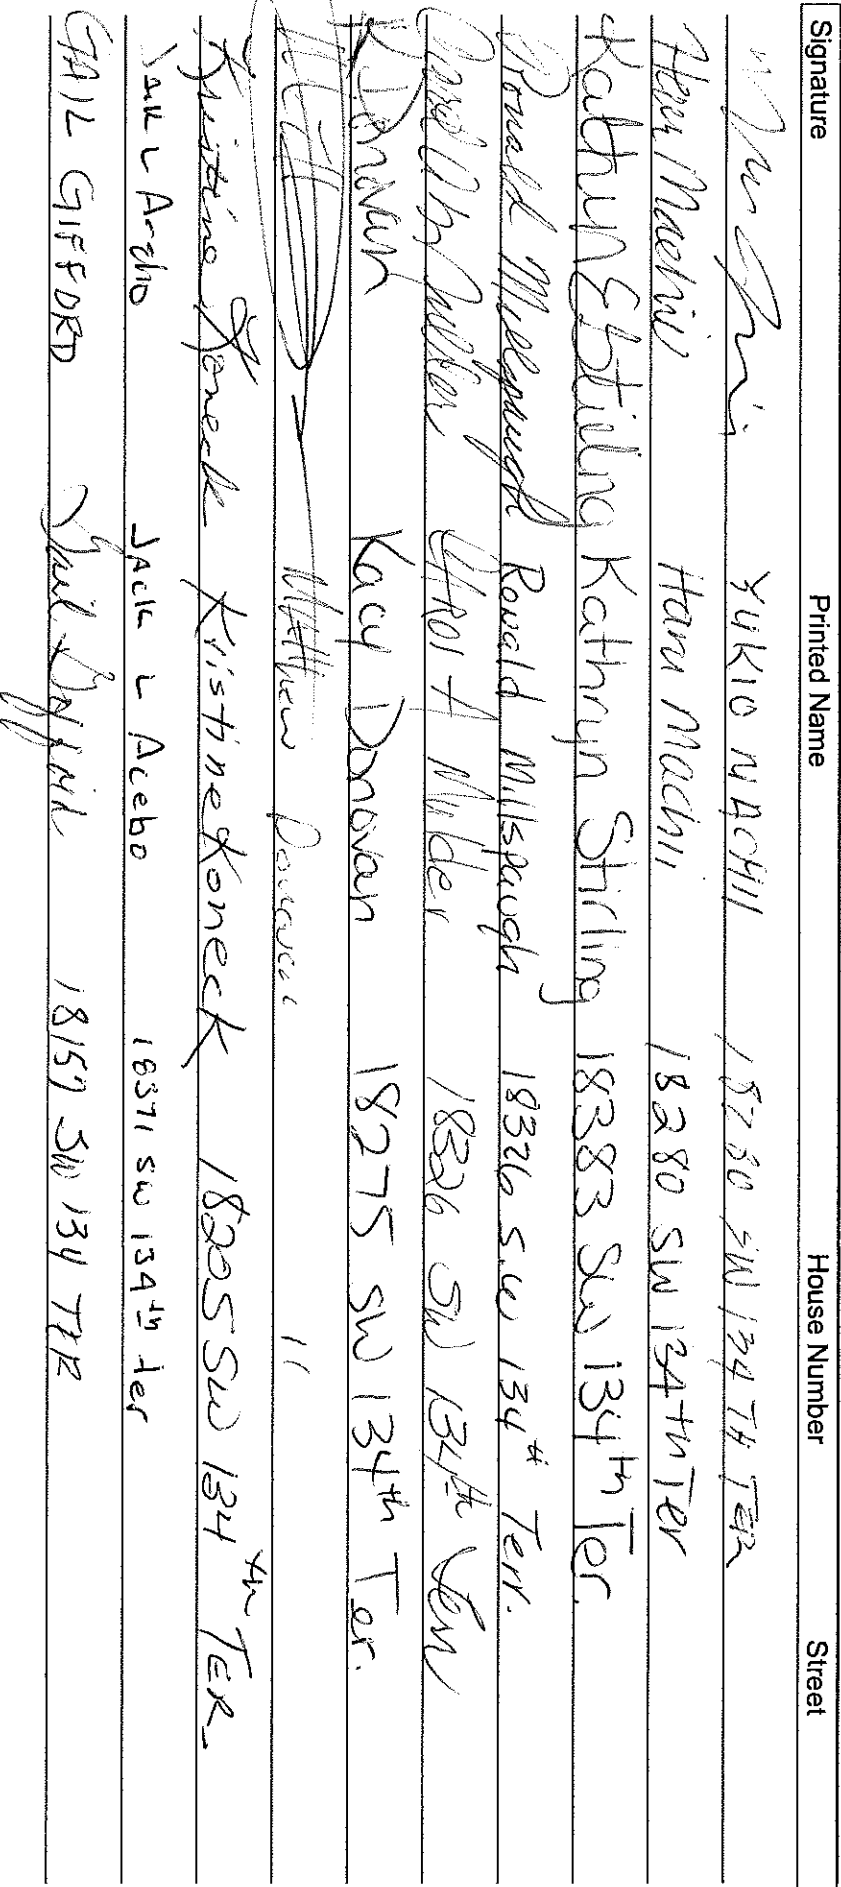 Signature Printed Name House Number Street
YUKIO MACHII 18280 SW 134 TH TER
Haru Machii Haru Machii 18280 SW 134th Ter
Kathryn E Stirling Kathryn Stirling 18383 SW 134th Ter.
Ronald Millspaugh Ronald Millspaugh 18326 S.W 134th Terr.
Carol A Mulder 18326 SW 134th Terr
K Donovan Kacy Donovan 18275 SW 134th Ter.
Matthew Donovan "
Kristine Koneck Kristine Koneck 18205 SW 134th TER.
Jack L Acebo Jack L Acebo 18371 SW 134th ter
GAIL GIFFORD Gail Gifford 18157 SW 134 TER